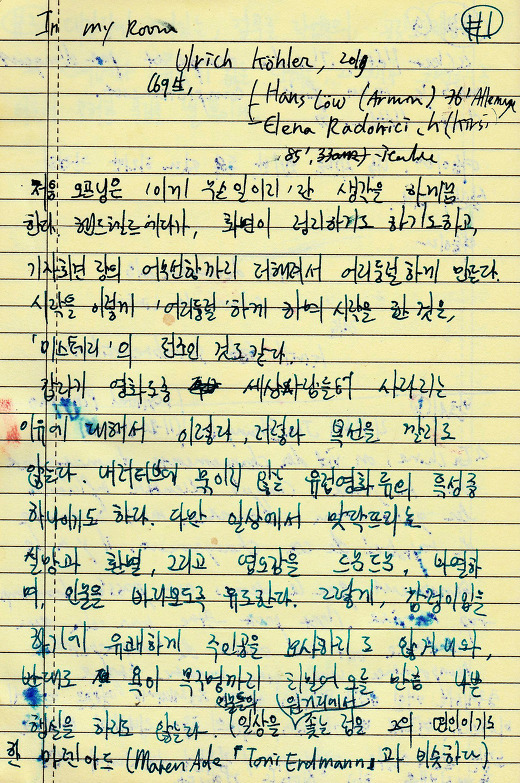 In my Room #1
Ulrich Köhler, 2018
69生,
Hans Löw (Armin) 76' Allemagne
Elena Radonicich (Kirsi
85',
처음 오프닝은 '이게 무슨일이리'란 생각을 하게끔
한다. 핸드헬드에다가, 화면이 정리하기도 하기도하고,
기자회견 장의 어수선함까리 더해려서 어리둥절하게 만든다.
시작을 이렇게 '어리둥절'하게 하여 시작을 한 것은,
'미스테리'의 전조인 것도 같다.
갑자기 영화도중 세상사람들이 사라리는
이유에 대해서 이렇다, 저렇다 복선을 깔리도
않는다. 내러티브에 묶이리 않는 유럽영화 류의 특성중
하나이기도 하다. 다만 일상에서 맞닥뜨리는
실망과 환멸, 그리고 혐오감을 드문드문, 나열하
며, 인물을 바라보도록 유도한다. 그렇게, 감정이입을
하기에 유쾌하게 주인공을 묘사하리도 않거니와,
반대로 욕이 목구멍까리 티밀어 오를 만큼 나쁜
인물들의 입가리에서
행실을 하리도 않는다. (일상을 좇는 점은 그의 연인이기도
한 마렌 아드 (Maren Ade 『Toni Erdmann』과 비슷하다)